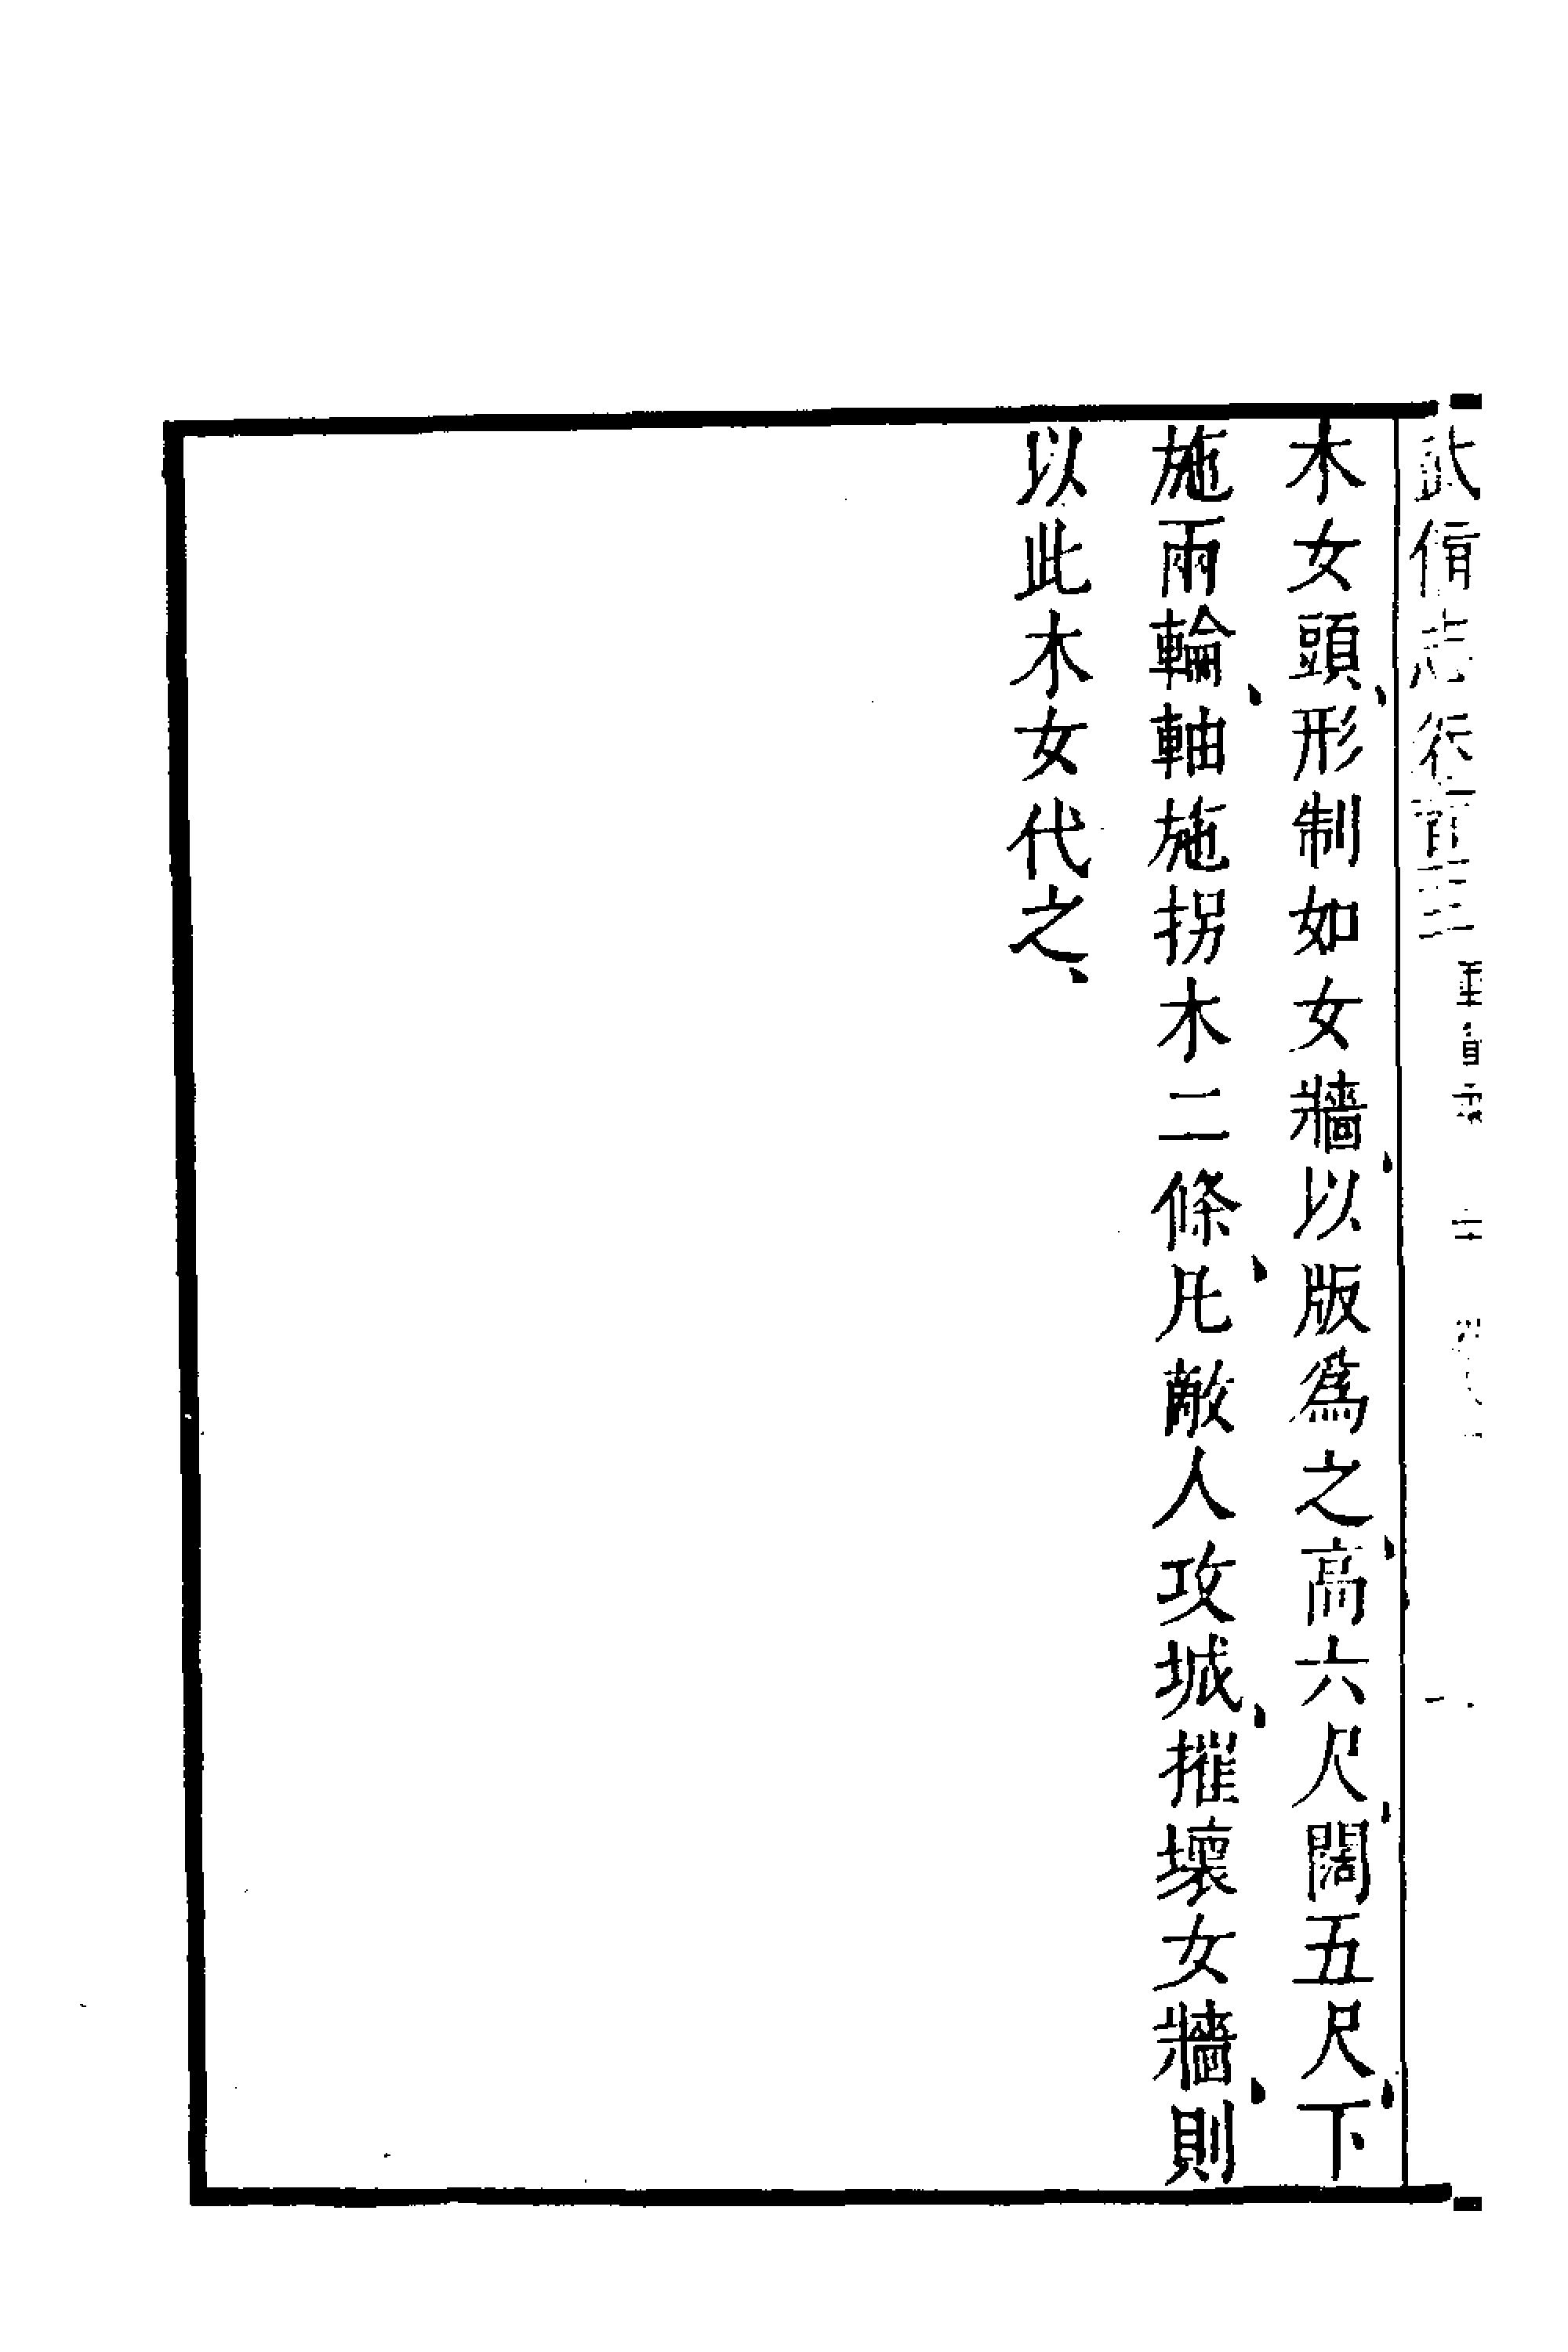 武備志卷
木女頭、形制如女牆、以版爲之、高六尺、闊五尺、下
施兩輪、軸施拐木二條、凡敵人攻城、摧壞女牆、則
以此木女代之、